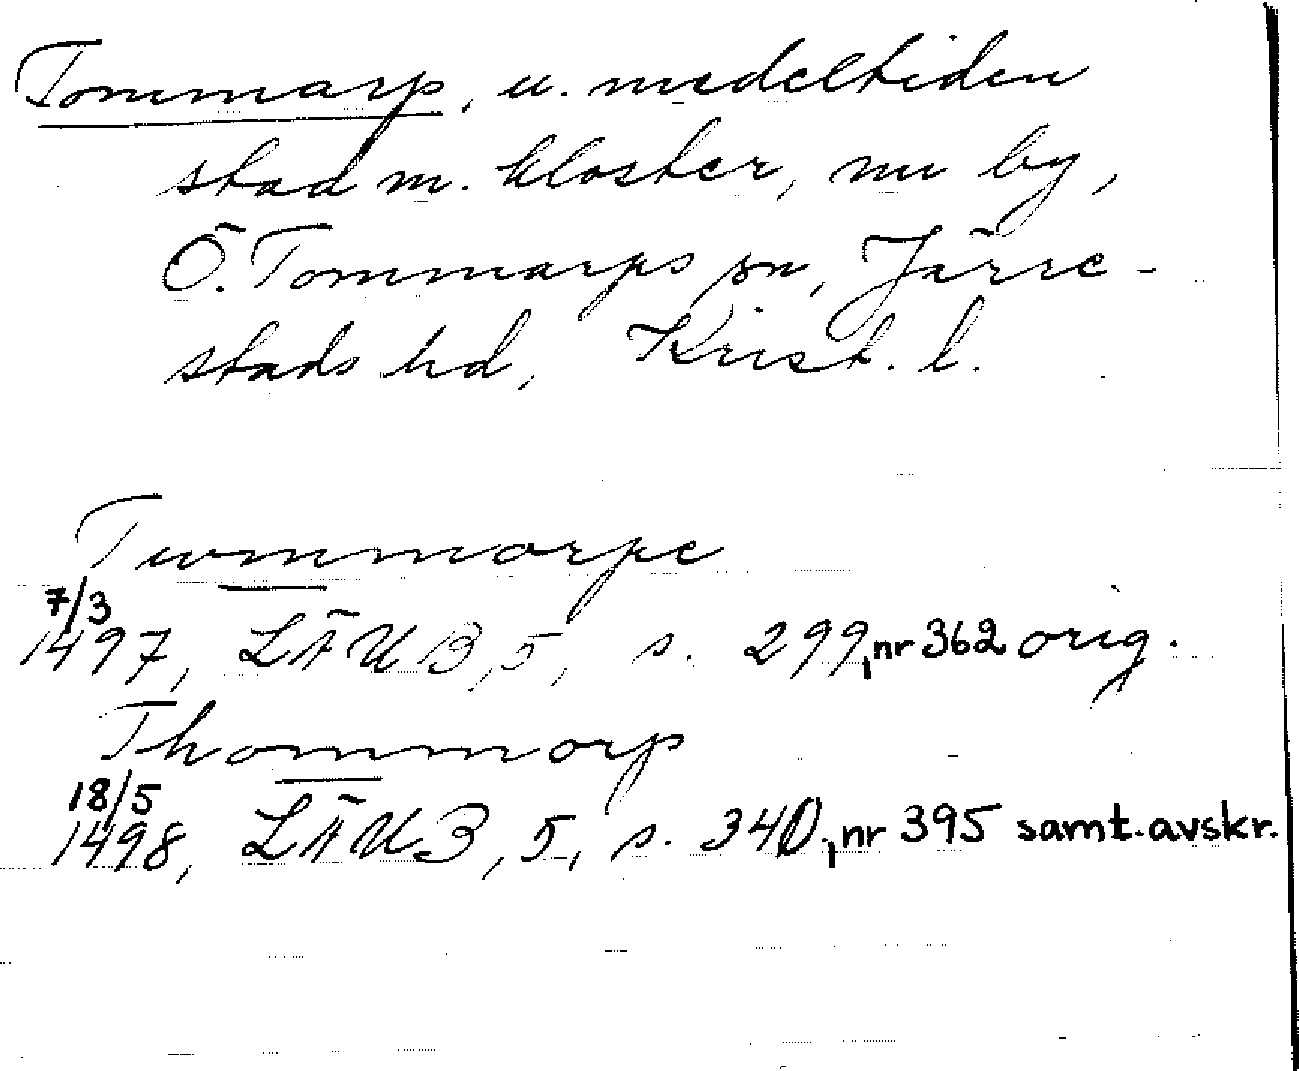 Tommarp, u. medeltiden
stad m. kloster, nu by,
Ö. Tommarps sn, Järre-
stads hd, Krist. l.
Twmmorpe
7/3
1497, LÄUB, 5, s. 299, nr 362 orig.
Thommorp
18/5
1498, LÄUB, 5, s. 340, nr 395 samt. avskr.